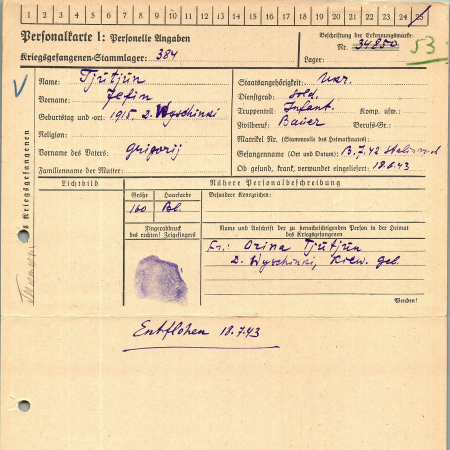 1 2 3 4 5 6 7 8 9 10 11 12 13 14 15 16 17 18 19 20 21 22 23 24 25
Personalkarte I: Personelle Angaben
Kriegsgefangenen-Stammlager: 384
Beschriftung der Erkennungsmarke
Nr. 34850
53
Lager:
Name: Tjutjun
Vorname: Jefim
Geburtstag und -ort: 1915 D. Wyschinki
Religion:
Vorname des Vaters: Grigorij
Familienname der Mutter:
Staatsangehörigkeit: Ukr.
Dienstgrad: Sold.
Truppenteil: Infant. Komp. usw.:
Zivilberuf: Bauer Berufs-Gr.:
Matrikel Nr. (Stammrolle des Heimatstaates):
Gefangennahme (Ort und Datum): 13.7.42
Ob gesund, krank, verwundet eingeliefert: 18.6.43
des Kriegsgefangenen
Lichtbild
Nähere Personalbeschreibung
Größe Haarfarbe
160 Bl.
Besondere Kennzeichen:
Fingerabdruck
des rechten! Zeigefingers
Name und Anschrift der zu benachrichtigenden Person in der Heimat
des Kriegsgefangenen
Fr.: Orina Tjutjun
D. Wyschinki, Kiew. Geb.
Wenden!
Entflohen 18.7.43